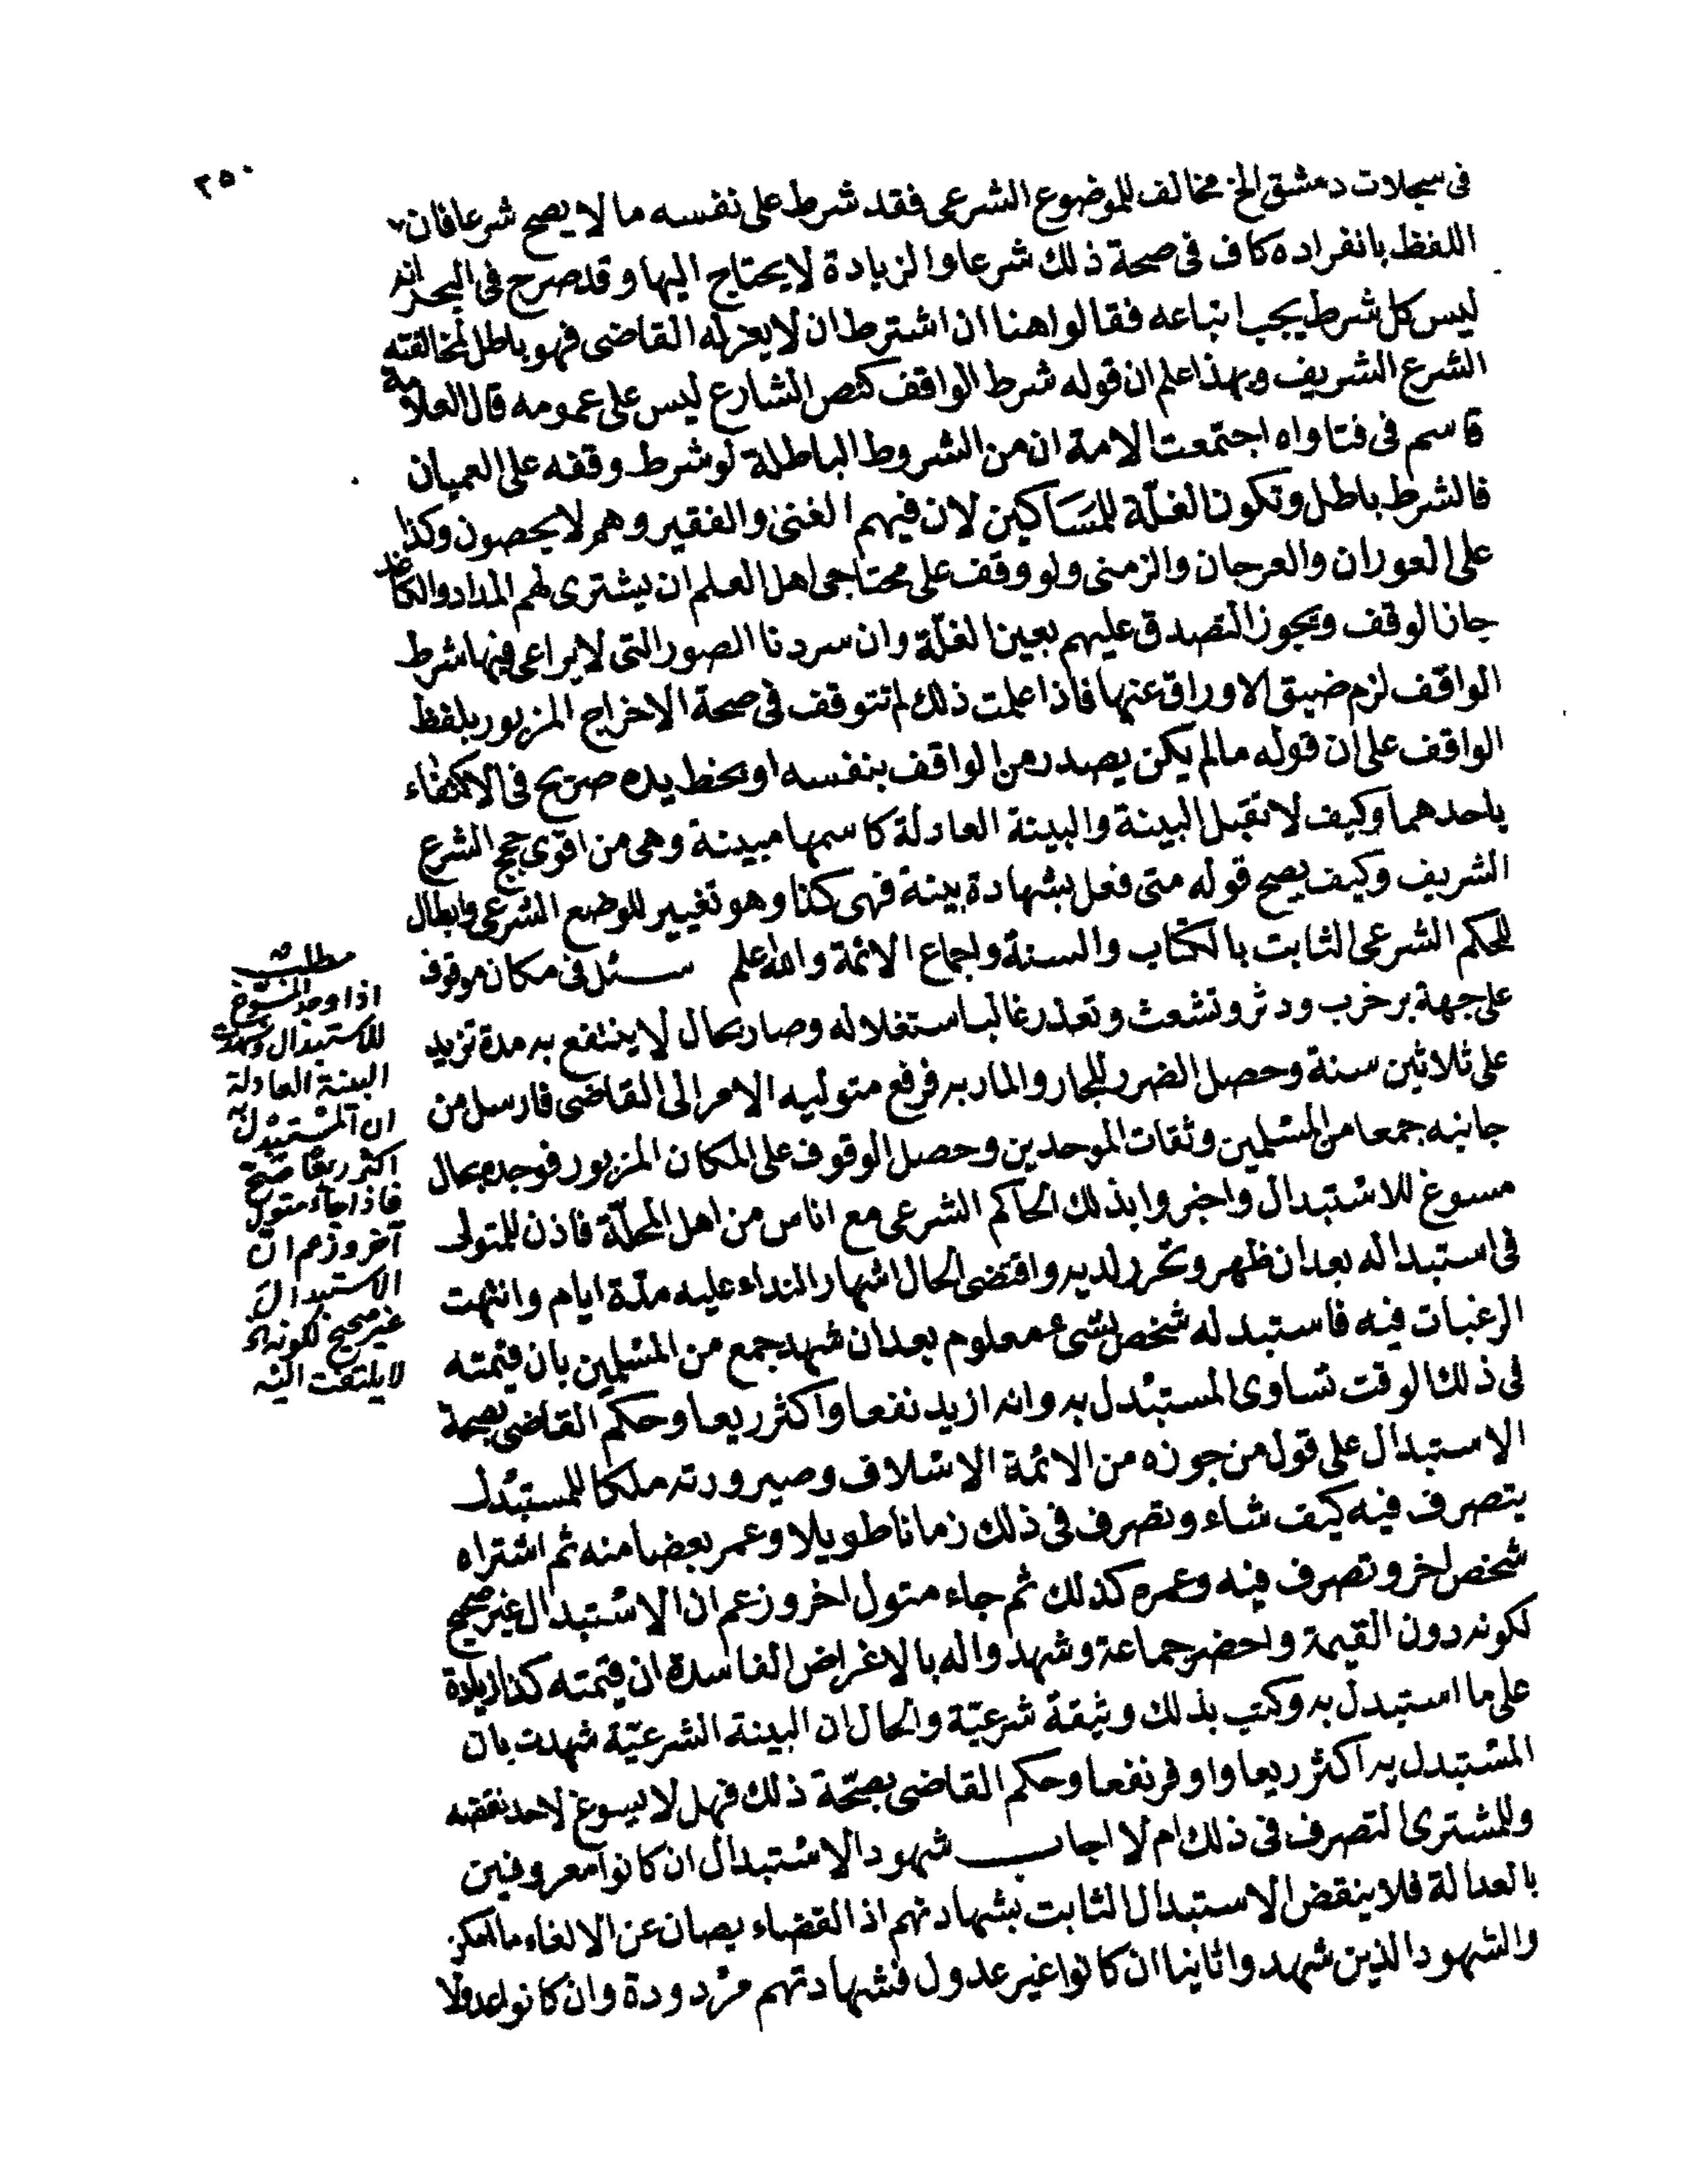 ٢٥٠
فى سجلات دمشق الخ مخالف للموضوع الشرعى فقد شرط على نفسه ما لا يصح شرعا فان
اللفظ بانفراده كاف فى صحة ذلك شرعا والزيادة لا يحتاج اليها وقد صرح فى البحر انه
ليس كل شرط يجب اتباعه فقالوا هنا ان اشترط ان لا يعزله القاضى فهو باطل لمخالفته
الشرع الشريف وبهذا علم ان قوله شرط الواقف كنص الشارع ليس على عمومه قال العلامة
قاسم فى فتاواه اجتمعت الامة ان من الشروط الباطلة لو شرط وقفه على العميان
فالشرط باطل وتكون الغلّة للمسَاكين لان فيهم الغنى والفقير وهم لا يحصون وكذا
على العوران والعرجان والزمنى ولو وقف على محتاجى اهل العلم ان يشترى لهم المداد والكاغد
جاز الوقف ويجوز التصدق عليهم بعين الغلّة وان سردنا الصور التى لا يراعى فيها شرط
الواقف لزم ضيق الاوراق عنها فاذا علمت ذلك لم تتوقف فى صحة الاخراج المزبور بلفظ
الواقف على ان قوله ما لم يكن يصدر من الواقف بنفسه او بخط يده صريح فى الاكتفاء
باحدهما وكيف لا تقبل البينة والبينة العادلة كاسمها مبينة وهى من اقوى حجج الشرع
الشريف وكيف يصح قوله متى فعل بشهادة بينة فهى كذا وهو تغيير للوضع الشرعى وابطال
للحكم الشرعى الثابت بالكتاب والسنة واجماع الائمة والله اعلم سئل فى مكان موقوف
على جهة بر خرب ودثر وتشعث وتعذر غالبا استغلاله وصار بحال لا ينتفع به مدة تزيد
على ثلاثين سنة وحصل الضرر للجار والمار به فرفع متوليه الامر الى القاضى فارسل من
جانبه جمعا من المسلمين وثقات الموحدين وحصل الوقوف على المكان المزبور فوجده بحال
مسوغ للاستبدال واخبروا بذلك الحاكم الشرعى مع اناس من اهل المحلّة فاذن للمتولى
فى استبداله بعد ان ظهر وتحرر لديه واقتضى الحال اشهار النداء عليه مدّة ايام وانتهت
الرغبات فيه فاستبدله شخص بشىء معلوم بعد ان شهد جمع من المسلمين بان قيمته
فى ذلك الوقت تساوى المستبدل به وانه ازيد نفعا واكثر ريعا وحكم القاضى بصحة
الاستبدال على قول من جوزه من الائمة الاسلاف وصيرورته ملكا للمستبدل
يتصرف فيه كيف شاء وتصرف فى ذلك زمانا طويلا وعمر بعضا منه ثم اشتراه
شخص اخر وتصرف فيه وعمره كذلك ثم جاء متول اخر وزعم ان الاستبدال غير صحيح
لكونه دون القيمة واحضر جماعة وشهدوا له بالاغراض الفاسدة ان قيمته كذا زيادة
على ما استبدل به وكتب بذلك وثيقة شرعيّة والحال ان البينة الشرعيّة شهدت بان
المستبدل به اكثر ريعا واوفر نفعا وحكم القاضى بصحّة ذلك فهل لا يسوغ لاحد نقضه
وللمشترى التصرف فى ذلك ام لا اجاب شهود الاستبدال ان كانوا معروفين
بالعدالة فلا ينقض الاستبدال الثابت بشهادتهم اذ القضاء يصان عن الالغاء ما امكن
والشهود الذين شهدوا ثانيا ان كانوا غير عدول فشهادتهم مردودة وان كانوا عدولا
مطلب
اذا وجد المسوغ
للاستبدال وشهدت
البينة العادلة
ان المستبدل به
اكثر ريعا صح
فاذا جاء متول
آخر وزعم ان
الاستبدال
غير صحيح لكونه
لا يلتفت اليه